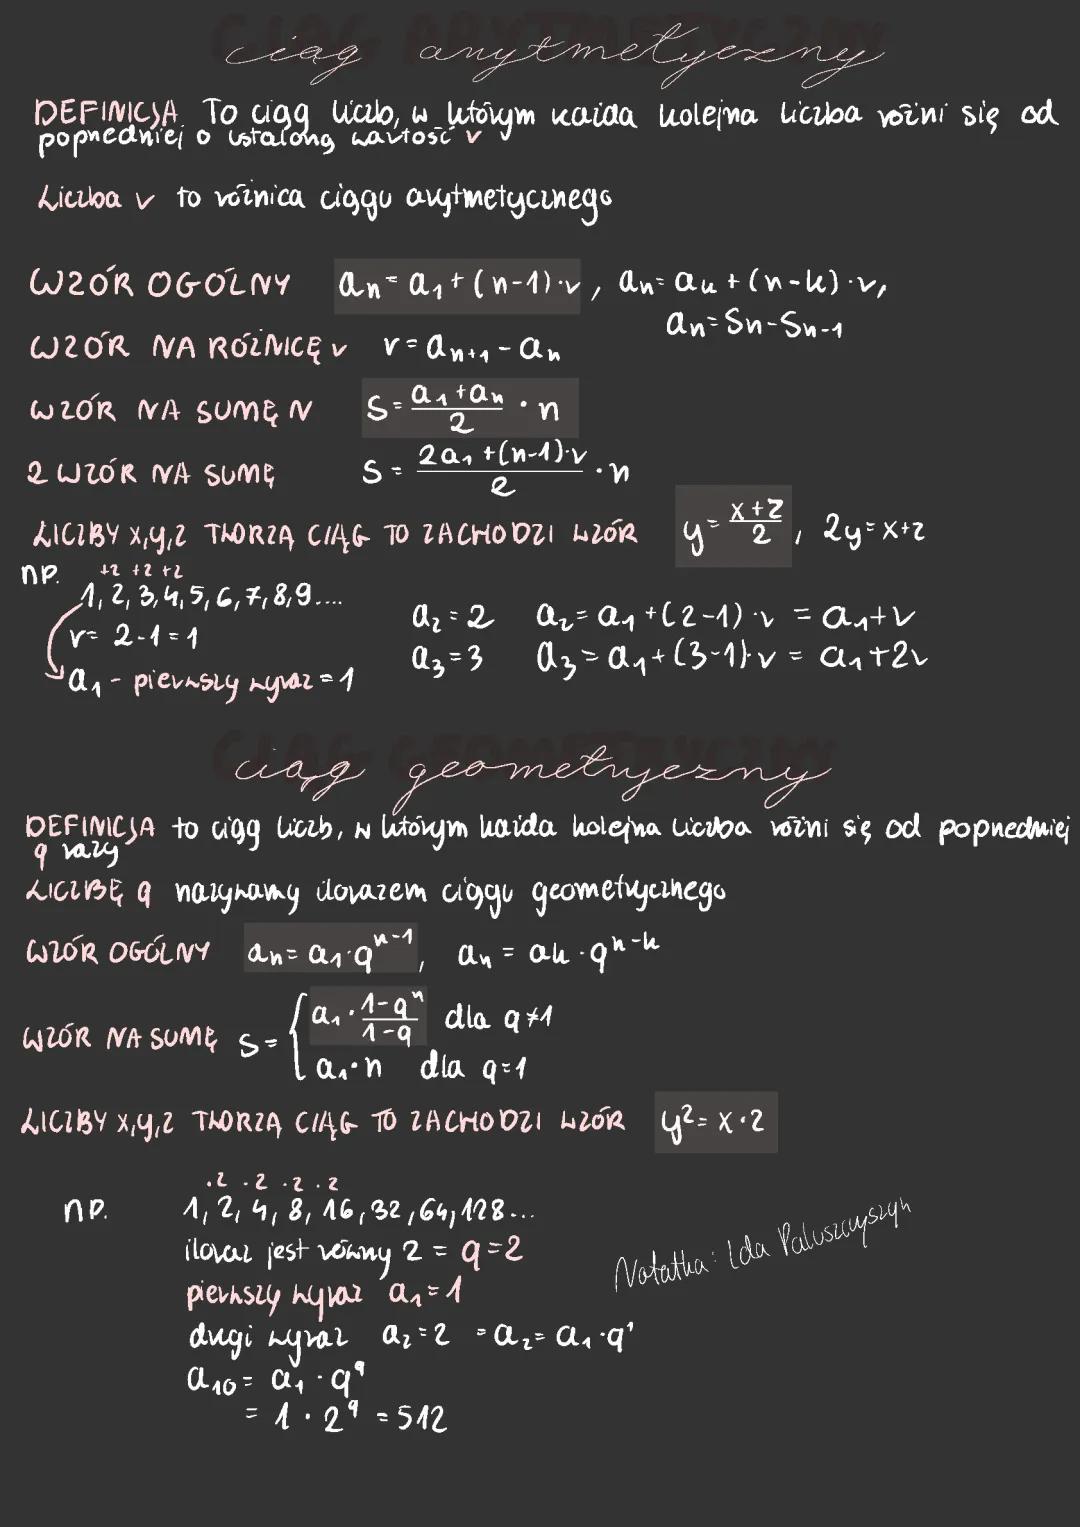 ciąg arytmetyczny
DEFINICJA To ciąg liczb, w którym każda kolejna liczba różni się od
poprzedniej o ustaloną wartość r
Liczba r to różnica ciągu arytmetycznego
WZÓR OGÓLNY an = a1 + (n-1)·r, an = ak + (n-k)·r,
an = Sn - Sn-1
WZÓR NA RÓŻNICĘ r r = an+1 - an
WZÓR NA SUMĘ N S = (a1+an)/2 · n
2 WZÓR NA SUMĘ S = (2a1+(n-1)·r)/2 · n
LICZBY x,y,z TWORZĄ CIĄG TO ZACHODZI WZÓR y = (x+z)/2, 2y = x+z
np. +2 +2 +2
1, 2, 3, 4, 5, 6, 7, 8, 9....
a2 = 2 a2 = a1 + (2-1)·r = a1+r
r = 2-1 = 1
a3 = 3 a3 = a1 + (3-1)·r = a1+2r
a1 - pierwszy wyraz = 1
ciąg geometryczny
DEFINICJA to ciąg liczb, w którym każda kolejna liczba różni się od poprzedniej
q razy
LICZBĘ q nazywamy ilorazem ciągu geometrycznego
WZÓR OGÓLNY an = a1·q^n-1, an = ak·q^n-k
WZÓR NA SUMĘ S = { a1 · (1-q^n)/(1-q) dla q≠1
a1·n dla q=1
LICZBY x,y,z TWORZĄ CIĄG TO ZACHODZI WZÓR y² = x·z
·2 ·2 ·2 ·2
np. 1, 2, 4, 8, 16, 32, 64, 128...
iloraz jest równy 2 = q=2
pierwszy wyraz a1 = 1
drugi wyraz a2 = 2 = a2 = a1·q¹
a10 = a1 · q⁹
= 1 · 2⁹ = 512
Notatka: Ida Paluszczyszyn